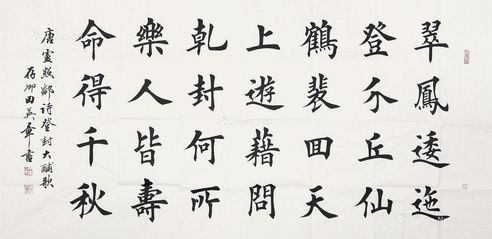 翠鳳逶迤
登介丘仙
鶴裴回天
上遊藉問
乾封何所
樂人皆壽
命得千秋
唐盧照鄰诗登封大酺歌
存卿田英章书